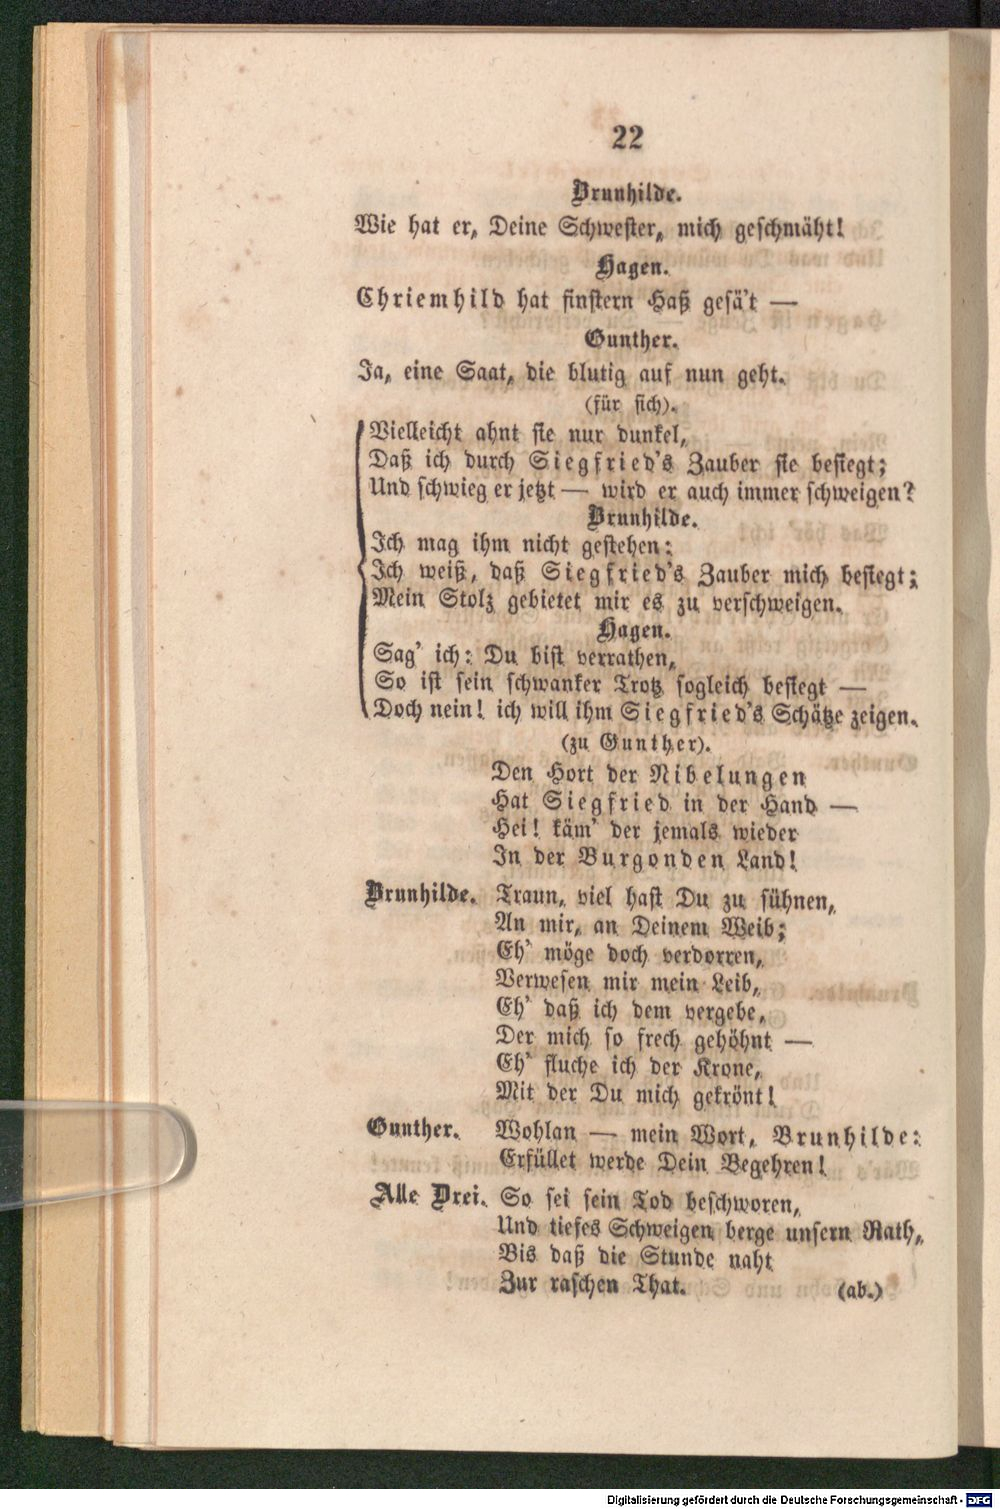 22
Brunhilde.
Wie hat er, Deine Schwester, mich geschmäht!
Hagen.
Chriemhild hat finstern Haß gesä't —
Gunther.
Ja, eine Saat, die blutig auf nun geht.
(für sich).
Vielleicht ahnt sie nur dunkel,
Daß ich durch Siegfried's Zauber sie besiegt;
Und schwieg er jetzt — wird er auch immer schweigen?
Brunhilde.
Ich mag ihm nicht gestehen:
Ich weiß, daß Siegfried's Zauber mich besiegt;
Mein Stolz gebietet mir es zu verschweigen.
Hagen.
Sag' ich: Du bist verrathen,
So ist sein schwanker Trotz sogleich besiegt —
Doch nein! ich will ihm Siegfried's Schätze zeigen.
(zu Gunther).
Den Hort der Nibelungen
Hat Siegfried in der Hand —
Hei! käm' der jemals wieder
In der Burgonden Land!
Brunhilde. Traun, viel hast Du zu sühnen,
An mir, an Deinem Weib;
Eh' möge doch verdorren,
Verwesen mir mein Leib,
Eh' daß ich dem vergebe,
Der mich so frech gehöhnt —
Eh' fluche ich der Krone,
Mit der Du mich gekrönt!
Gunther. Wohlan — mein Wort, Brunhilde:
Erfüllet werde Dein Begehren!
Alle Drei. So sei sein Tod beschworen,
Und tiefes Schweigen berge unsern Rath,
Bis daß die Stunde naht
Zur raschen That. (ab.)
Digitalisierung gefördert durch die Deutsche Forschungsgemeinschaft - DFG